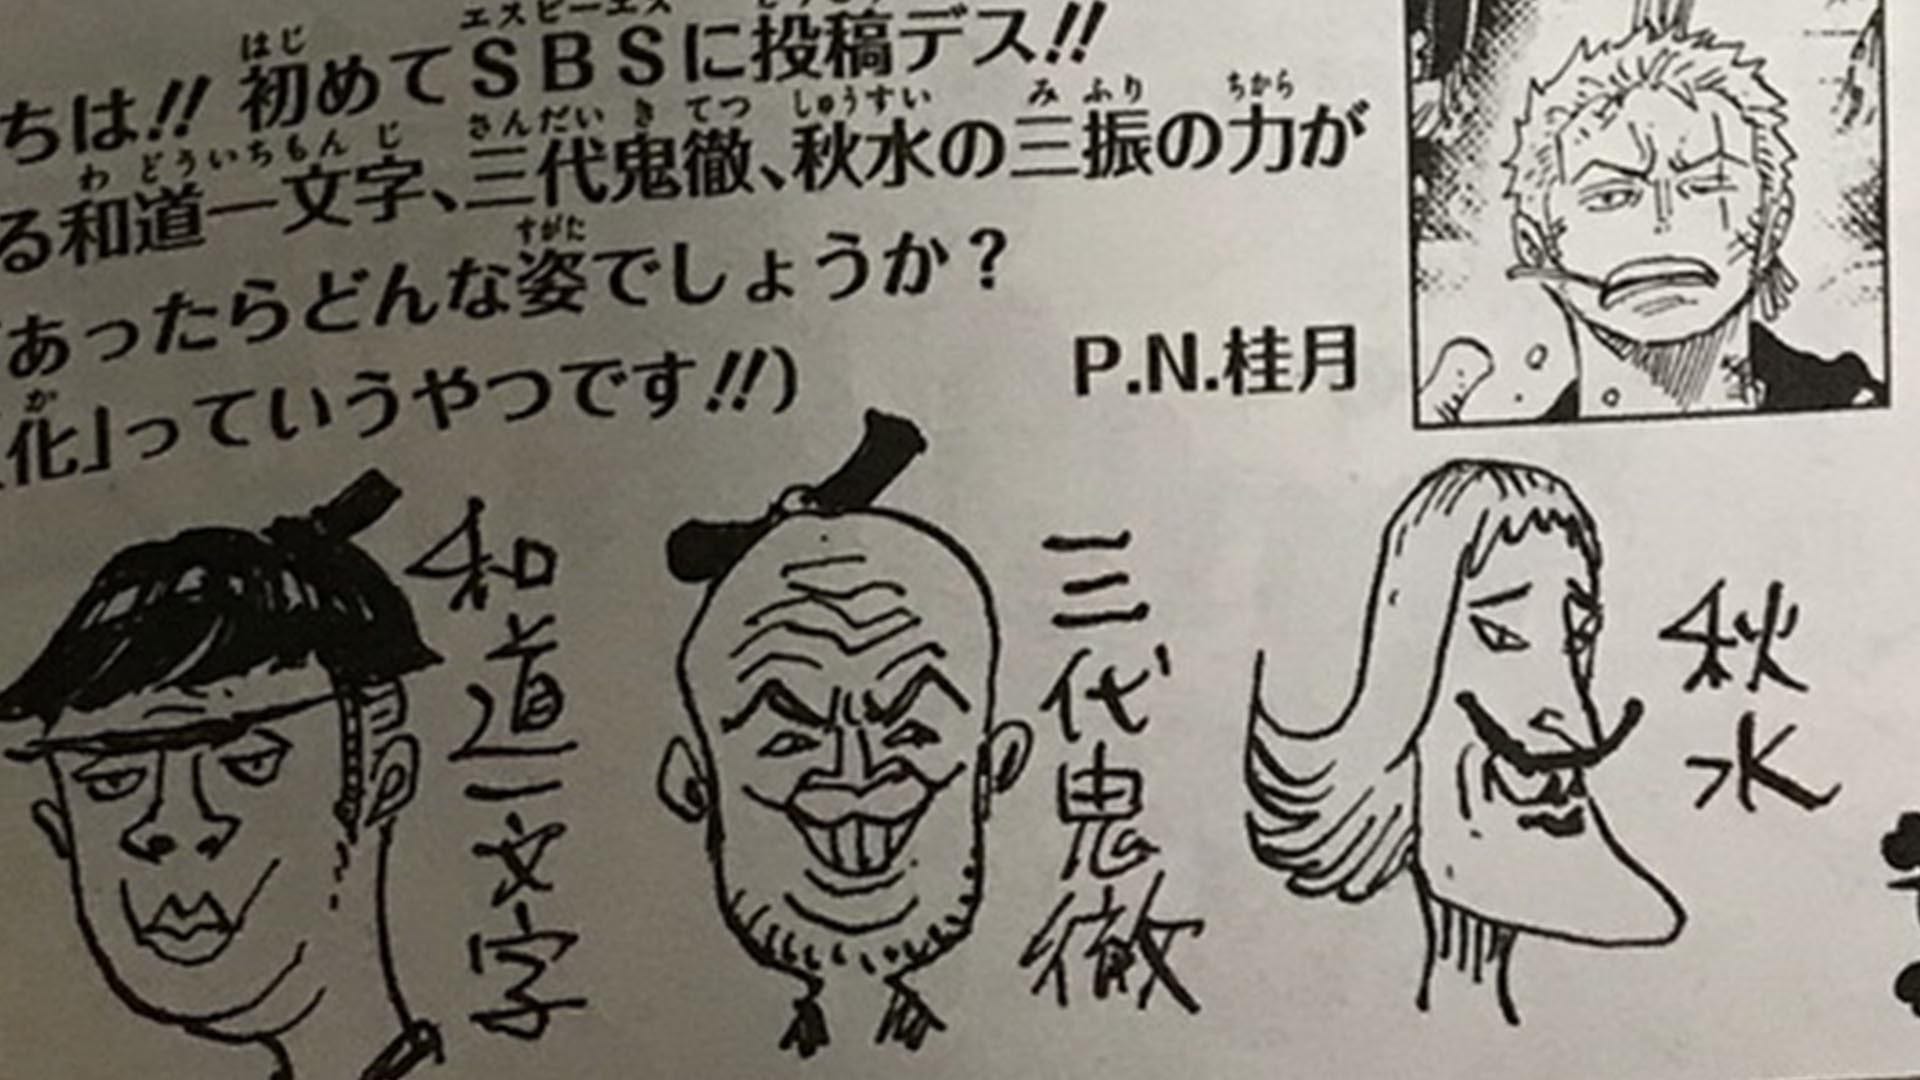 ちは!!初めてSBSに投稿デス!!
る和道一文字、三代鬼徹、秋水の三振の力が
あったらどんな姿でしょうか?
化」っていうやつです!!)
P.N.桂月
和道一文字
三代鬼徹
秋水